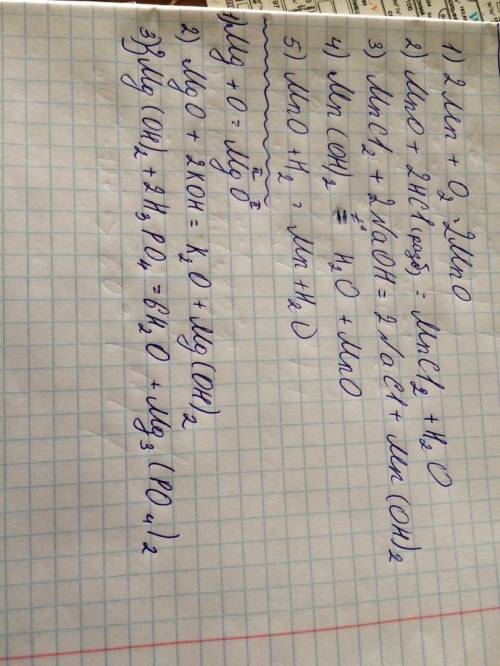 1) 2Mn + O2 = 2MnO
2) MnO + 2HCl (разб) = MnCl2 + H2O
3) MnCl2 + 2NaOH = 2NaCl + Mn(OH)2
4) Mn(OH)2 =t° H2O + MnO
5) MnO + H2 = Mn + H2O
1) Mg + O = MgO
2) MgO + 2KOH = K2O + Mg(OH)2
3) 3Mg(OH)2 + 2H3PO4 = 6H2O + Mg3(PO4)2